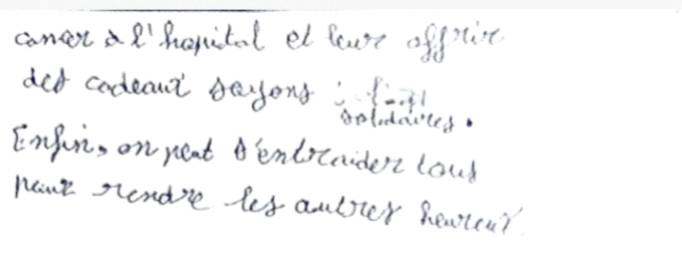 cancer à l'hopital et leur offrir
des cadeaux soyons :
solidaires.
Enfin, on peut s'entraider tous
pour rendre les autres heureux.